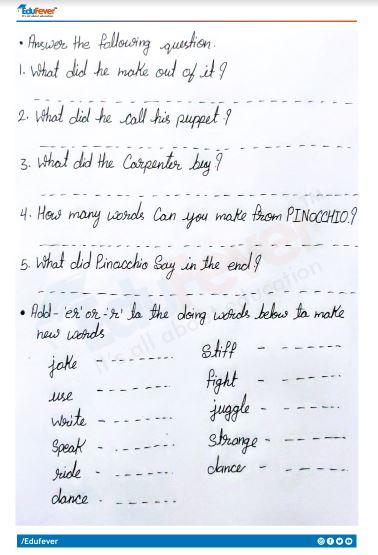 EduFever
It's all about education
• Answer the following question.
1. What did he make out of it?
2. What did he call his puppet?
3. What did the Carpenter buy?
4. How many words Can you make from PINOCCHIO?
5. What did Pinocchio Say in the end?
• Add - 'er' or -'r' to the doing words below to make
new words
joke - Stiff -
use - fight -
write - juggle -
Speak - Strange -
ride - dance -
dance -
/Edufever